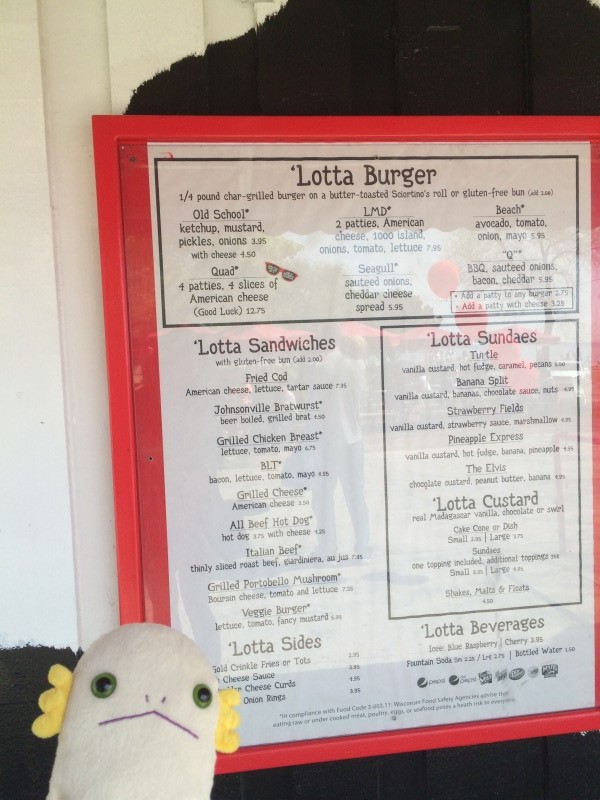 'Lotta Burger
1/4 pound char-grilled burger on a butter-toasted Sciortino's roll or gluten-free bun (add 2.00)
Old School*
ketchup, mustard,
pickles, onions 3.95
with cheese 4.50
LMD*
2 patties, American
cheese, 1000 island,
onions, tomato, lettuce 7.95
Beach*
avocado, tomato,
onion, mayo 5.95
Quad*
4 patties, 4 slices of
American cheese
(Good Luck) 12.75
Seagull*
sauteed onions,
cheddar cheese
spread 5.95
"Q"*
BBQ, sauteed onions,
bacon, cheddar 5.95
• Add a patty to any burger 2.75
• Add a patty with cheese 3.25
'Lotta Sandwiches
with gluten-free bun (add 2.00)
Fried Cod
American cheese, lettuce, tartar sauce 7.95
Johnsonville Bratwurst*
beer boiled, grilled brat 4.50
Grilled Chicken Breast*
lettuce, tomato, mayo 6.75
BLT*
bacon, lettuce, tomato, mayo 6.95
Grilled Cheese*
American cheese 3.50
All Beef Hot Dog*
hot dog 3.75 with cheese 4.25
Italian Beef*
thinly sliced roast beef, giardiniera, au jus 7.95
Grilled Portobello Mushroom*
Boursin cheese, tomato and lettuce 7.25
Veggie Burger*
lettuce, tomato, fancy mustard
'Lotta Sides
Gold Crinkle Fries or Tots 2.95
Cheese Sauce 3.95
Cheese Curds 4.95
Onion Rings 3.95
'Lotta Sundaes
Turtle
vanilla custard, hot fudge, caramel, pecans
Banana Split
vanilla custard, bananas, chocolate sauce, nuts 4.95
Strawberry Fields
vanilla custard, strawberry sauce, marshmallow 4.95
Pineapple Express
vanilla custard, hot fudge, banana, pineapple 4.95
The Elvis
chocolate custard, peanut butter, banana 4.95
'Lotta Custard
real Madagascar vanilla, chocolate or swirl
Cake Cone or Dish
Small | Large 3.75
Sundaes
one topping included, additional toppings
Small | Large 4.95
Shakes, Malts & Floats
4.50
'Lotta Beverages
Icee: Blue Raspberry | Cherry 3.95
Fountain Soda Sm 2.25 / Lrg 2.75 | Bottled Water 1.50
pepsi
*In compliance with Food Code 3-603.11: Wisconsin Food Safety Agencies advise that
eating raw or under cooked meat, poultry, eggs, or seafood poses a heath risk to everyone.